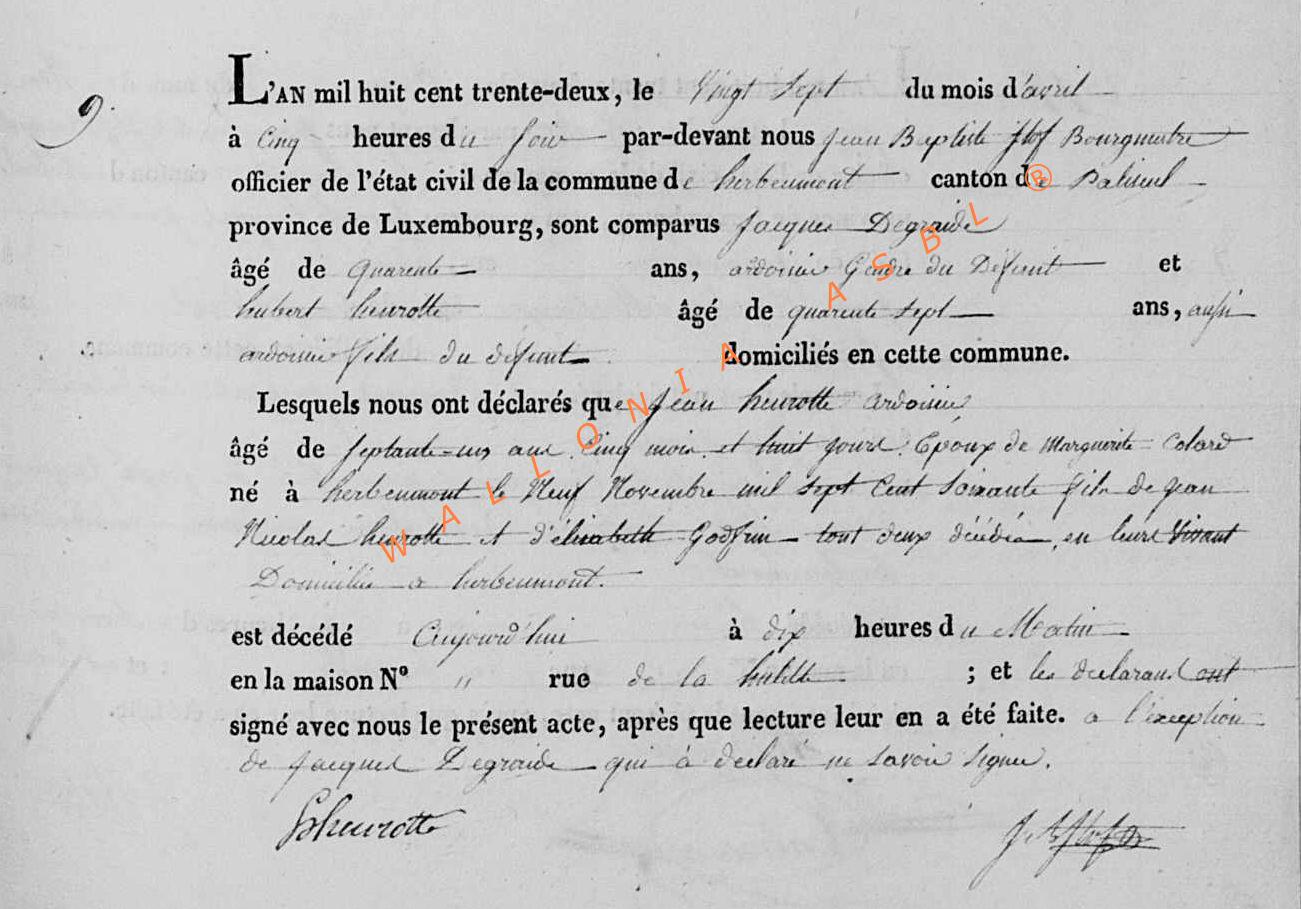 9.
L'AN mil huit cent trente-deux, le Vingt Sept du mois d'avril
à Cinq heures du Soir par-devant nous Jean Baptiste Bourgmestre
officier de l'état civil de la commune de herbeumont canton de Paliseul
province de Luxembourg, sont comparus Jacques Degraide
âgé de Quarente ans, ardoisier Gendre du Défunt et
hubert heurotte âgé de quarente sept ans, aussi
ardoisier fils du défunt domiciliés en cette commune.
Lesquels nous ont déclarés que Jean heurotte ardoisier
âgé de septante-un ans Cinq mois et huit jours Epoux de Marguerite Colard
né à herbeumont le Neuf Novembre mil sept Cent Soixante fils de jean
Nicolas heurotte et d'élisabeth Godfrin tout deux décédés, en leurs Vivant
Domiciliés a herbeumont.
est décédé Aujourd'hui à dix heures du Matin
en la maison N° " rue de la hulette ; et les declarans ont
signé avec nous le présent acte, après que lecture leur en a été faite. a l'exception
de Jacques Degraide qui à declaré ne savoir signer.
heurotte
WALLONIA ASBL ®